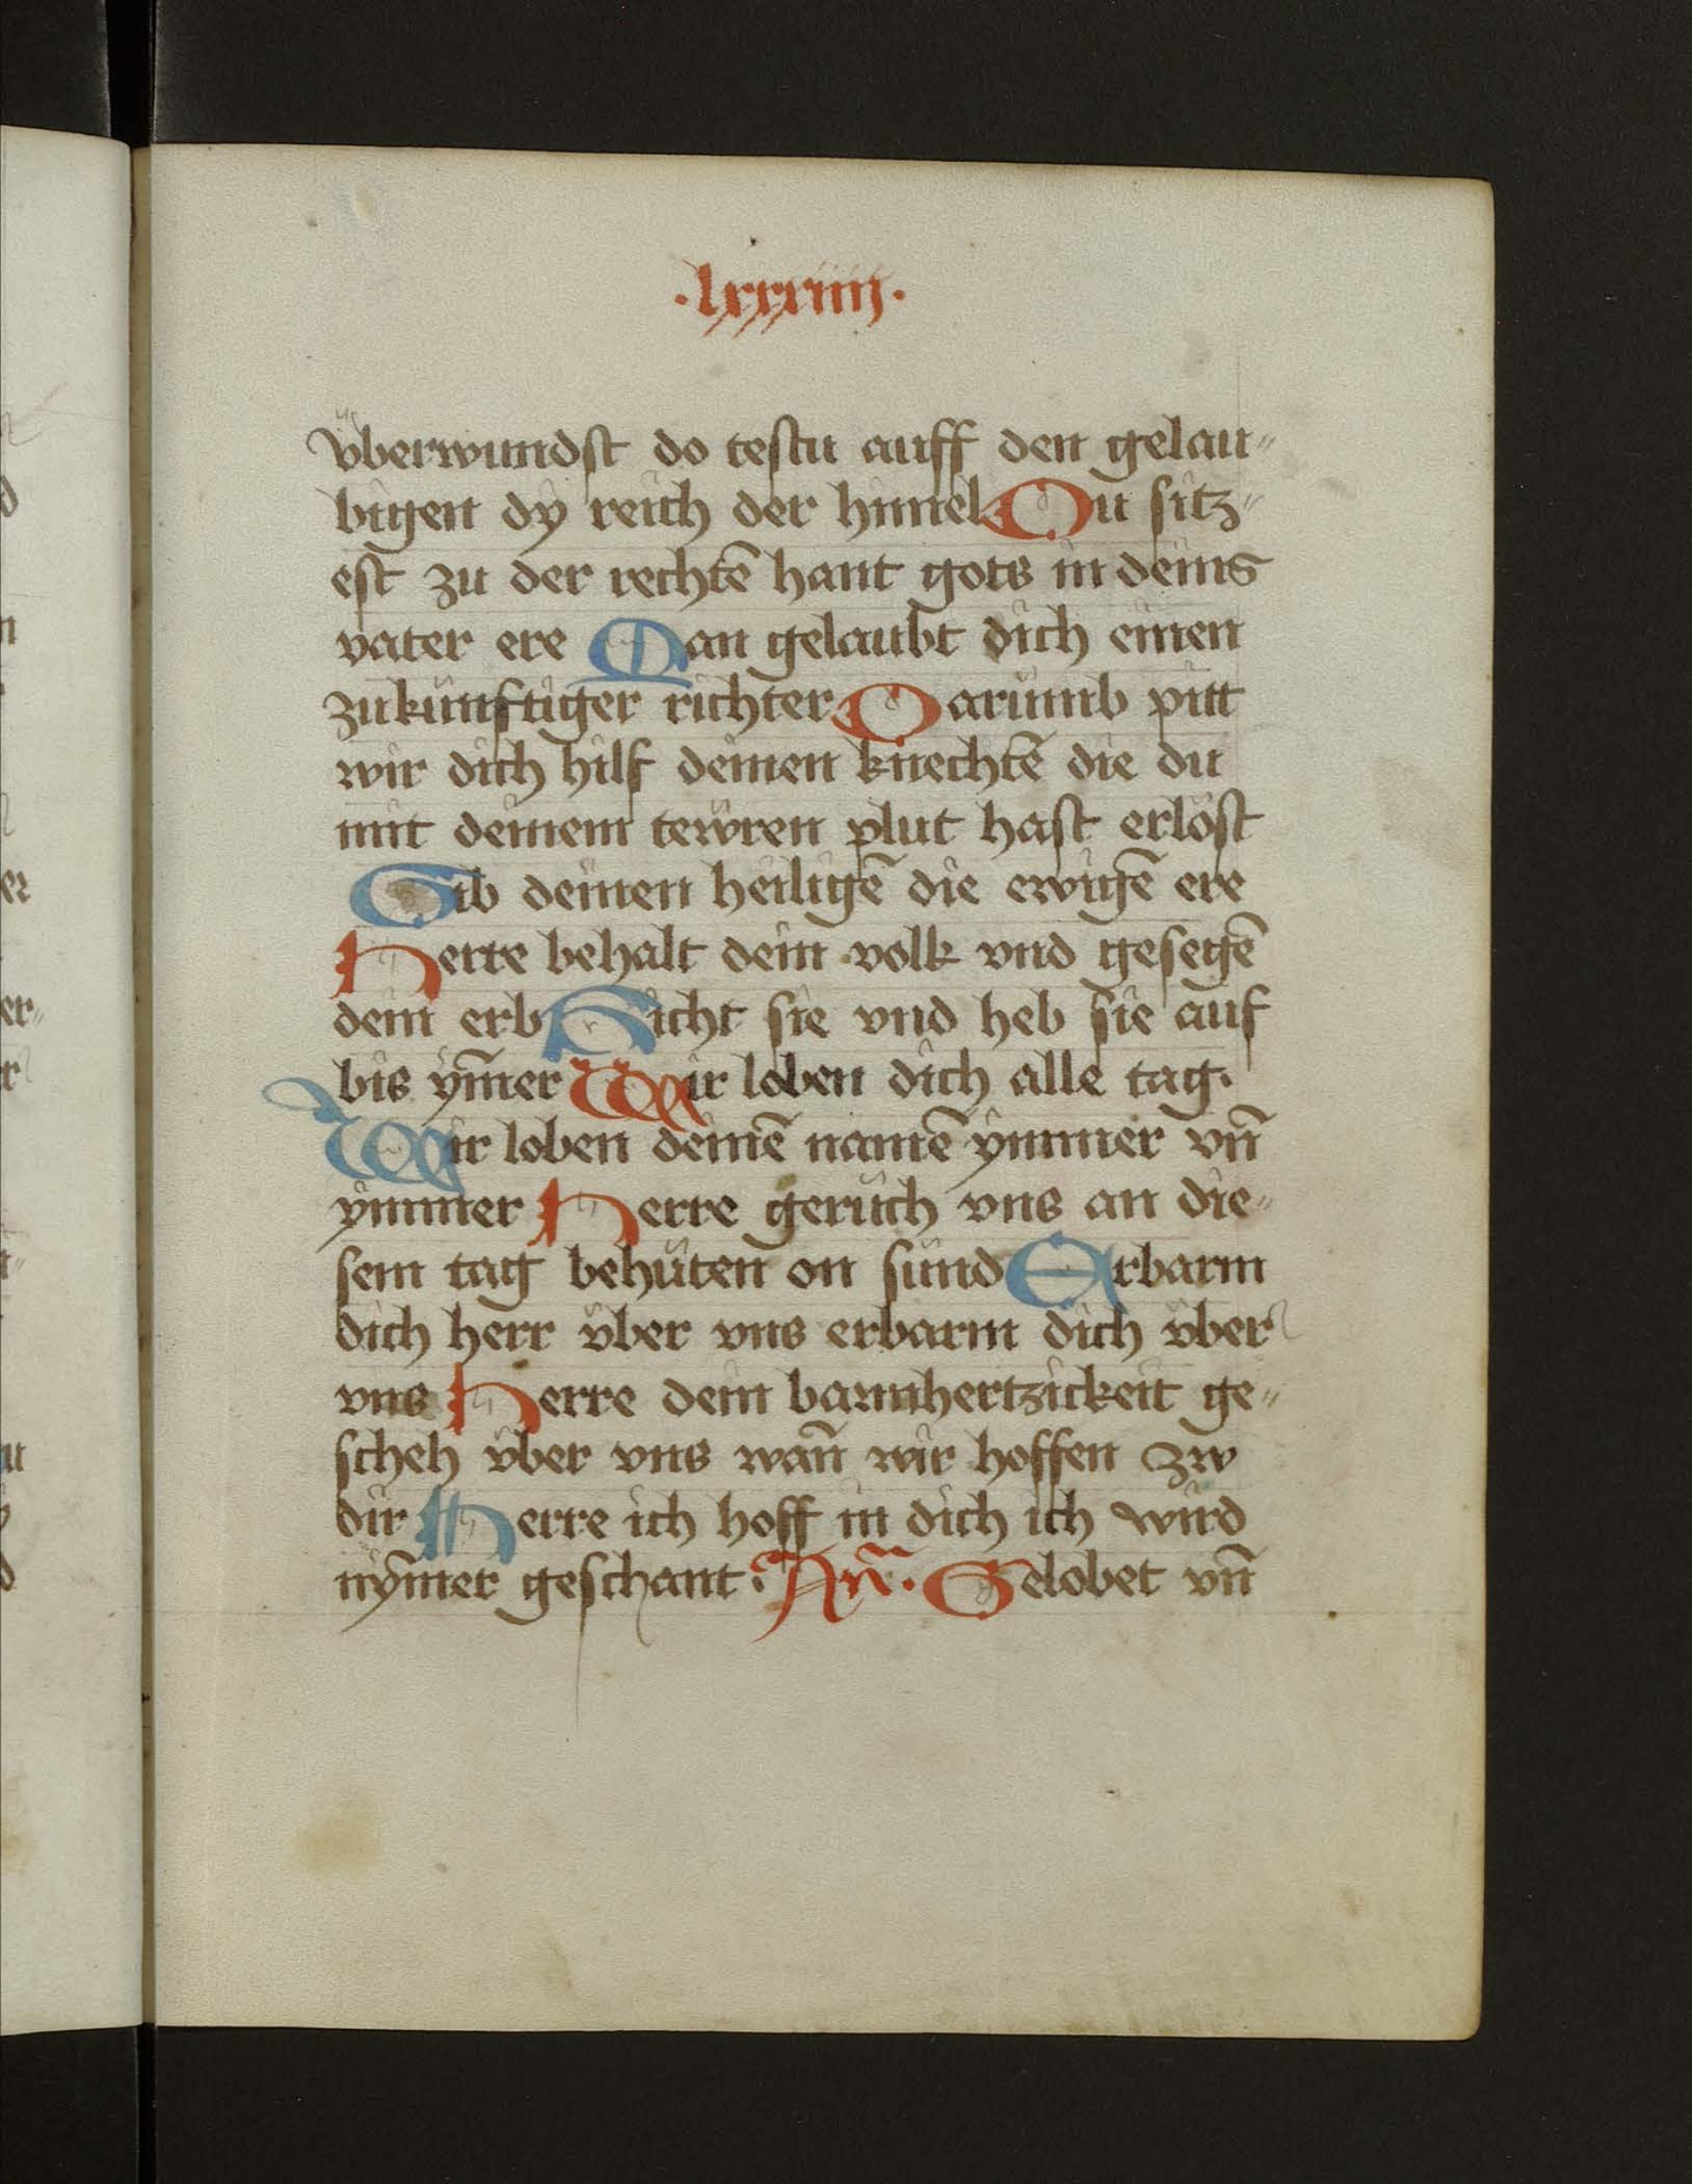 ·lxxxiiij·
vͤberwundſt do teſtu auff den gelau⸗
bigen dy reich der himel Du ſitz⸗
eſt zu der rechtē hant gots in deins
vater ere Man gelaubt dich einen
zukünftiger richter Darumb pitt
wir dich hilf deinen knechtē die du
mit deinem tewren plut haſt erlöſt
Gib deinen heiligē die ewigē ere
Herre behalt dein volk vnd geſegē
dein erb Richt ſie vnd heb ſie auf
bis ym̄er Wir loben dich alle tag.
Wir loben deinē namē ymmer vn̄
ymmer Herre geruch vns an die⸗
ſem tag behüten on ſünd Erbarm
dich herr v̈ber vns erbarm dich v̈ber
vns Herre dein barmhertzickeit ge⸗
ſcheh v̈ber vns wan̄ wir hoffen zw
dir Herre ich hoff in dich ich wird
nym̄er geſchant. An̄. Gelobet vn̄